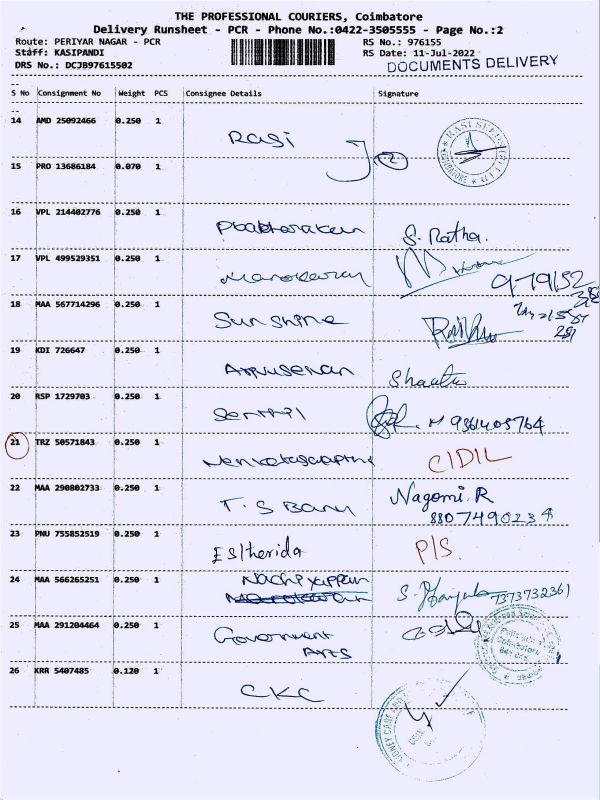 THE PROFESSIONAL COURIERS, Coimbatore
Delivery Runsheet - PCR - Phone No.:0422-3505555 - Page No.:2
Route: PERIYAR NAGAR - PCR RS No.: 976155
Staff: KASIPANDI RS Date: 11-Jul-2022
DRS No.: DCJB97615502 DOCUMENTS DELIVERY
S No Consignment No Weight PCS Consignee Details Signature
14 AMD 25092466 0.250 1 Rasi
15 PRO 13686184 0.070 1
16 VPL 214402776 0.250 1 Prabharakan S. Ratha.
17 VPL 499529351 0.250 1 Manokaran
18 MAA 567714296 0.250 1 Sunshine
19 KDI 726647 0.250 1
20 RSP 1729703 0.250 1 Senthil
21 TRZ 50571843 0.250 1 CIDIL
22 MAA 290802733 0.250 1 T.S Banu Nagomi.R
8807490234
23 PNU 755852519 0.250 1 Estherida P/S.
24 MAA 566265251 0.250 1 Nachiyappan 7373732361
25 MAA 291204464 0.250 1 Government
Arts
26 KRR 5407485 0.120 1 CKC